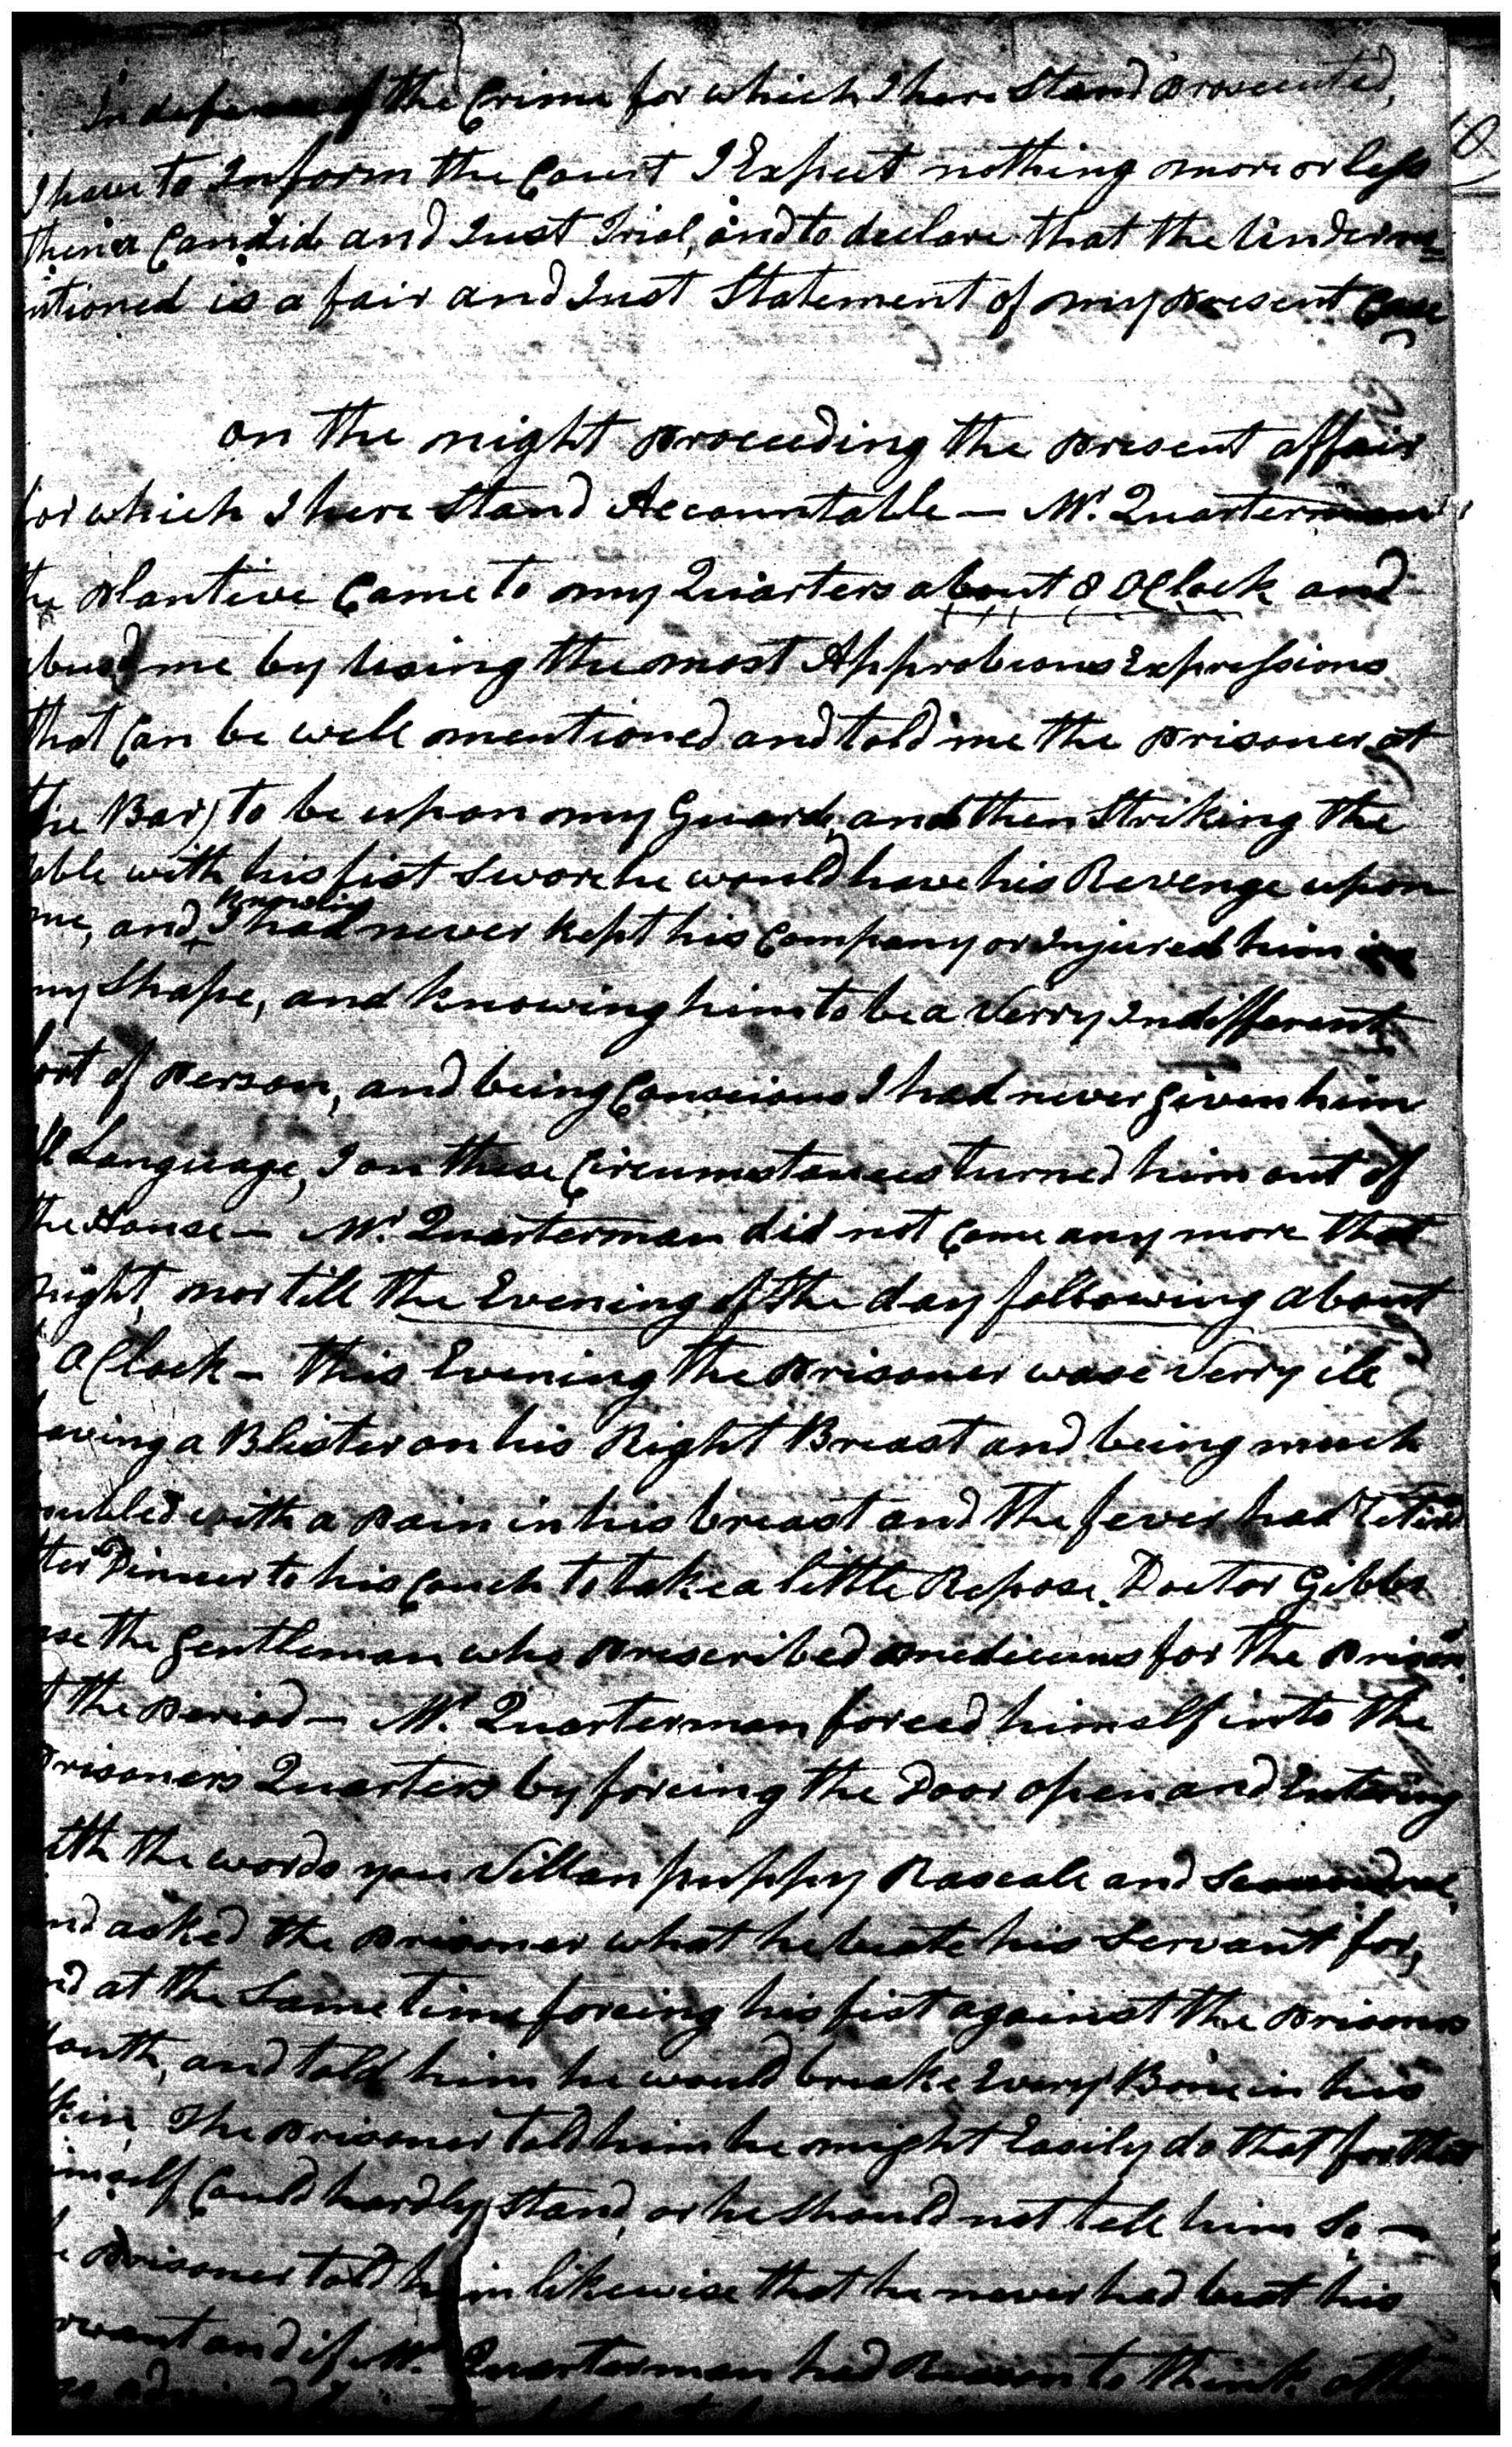 In defence of the Crime for which I here Stand prosecuted,
I have to Inform the Court I Expect nothing more or less
then a Candid and Just Trial, and to declare that the Underme-
ntioned is a fair and Just Statement of my present Case
on the night proceeding the present affair
for which I here Stand Accountable — Mr. Quarterman
the plantive Came to my Quarters about 8 OClock and
abused me by using the most Approbeous Expressions
that Can be well mentioned and told me the prisoner at
the Bar) to be upon my Guard, and then Striking the
able with his fist Swore he would have his Revenge upon
me, and Knowing I had never kept his Company or Injured him in
any Shape, and knowing him to be a Verry Indifferent
sort of person, and being Conscious I had never given him
ill Language, I on these Circumstances turned him out of
the House — Mr. Quarterman did not Come any more that
night, nor till the Evening of the day following about
OClock — this Evening the prisoner wase Verry ill
having a Blister on his Right Breast and being much
oubled with a pain in his breast and the fever had retired
fter Dinner to his Couch to take a little Repose. Doctor Gibbs
ase the Gentleman who prescribed medicines for the prison.
t the period — Mr. Quarterman forced himself into the
Prisoners Quarters by forcing the Door open and Entering
ith the words you Villan puppy Rascale and Scoundrel,
nd asked the prisoner what he beate his Servant for,
nd at the Same time forcing his fist against the prisoners
outh, and told him he would breake Every Bone in his
kin, The prisoner told him he might Easily do that for that
imself Could hardly Stand, or he Should not tell him So —
e prisoner told him likewise that he never had beat his
ervant and if Mr. Quarterman had Reason to think othe